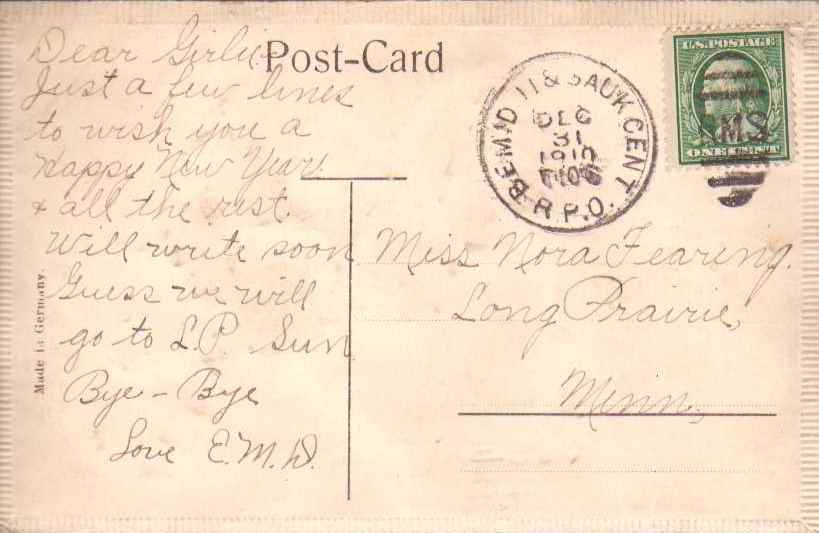 Post-Card
Dear Girlie
Just a few lines
to wish you a
Happy New Year
& all the rest.
Will write soon
Guess we will
go to L.P. Sun
Bye-Bye
Love E.M.D.
Made in Germany.
BEMIDJI & SAUK CENT
DEC
31
1910
R.P.O.
U.S. POSTAGE
RMS
ONE CENT
Miss Nora Fearing.
Long Prairie,
Minn,